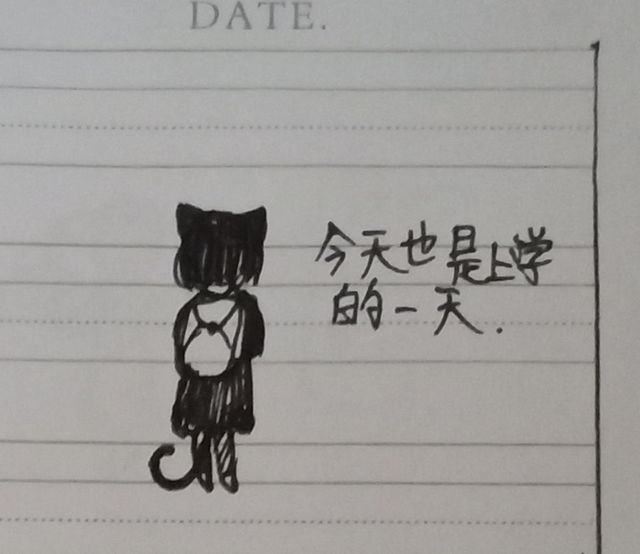 DATE.
今天也是上学
的一天.